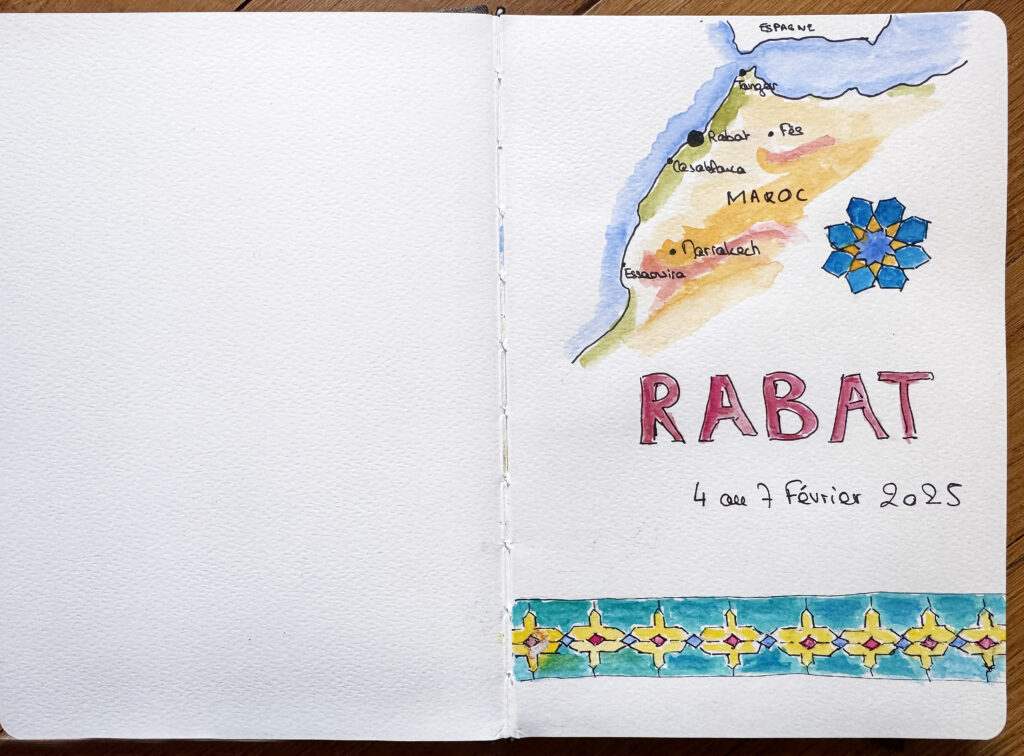 ESPAGNE
Tanger
Rabat
Fès
Casablanca
MAROC
Marrakech
Essaouira
RABAT
4 au 7 Février 2025